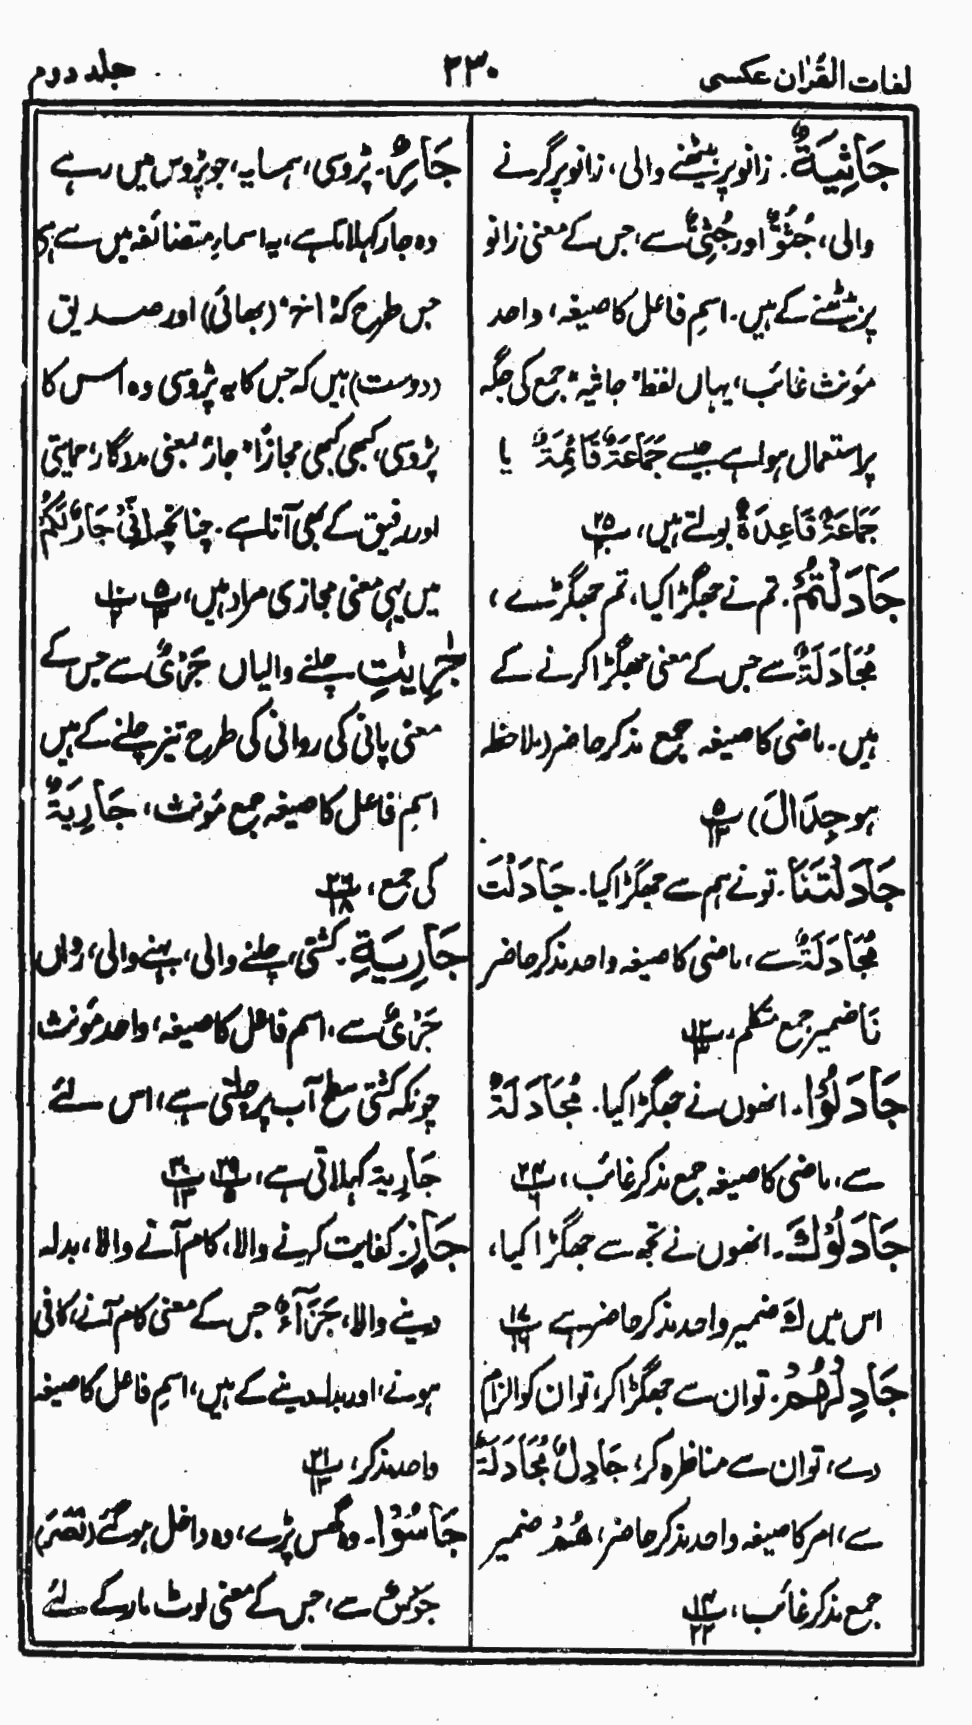 لغات القرٰان عکسی
۲۳۰
جلد دوم
جَاثِيَةً. زانو پر بیٹھنے والی، زانو پر گرنے
والی، جُثُوٌّ اور جُثِيٌّ سے، جس کے معنی زانو
پر بیٹھنے کے ہیں۔ اسمِ فاعل کا صیغہ، واحد
مؤنث غائب، یہاں لفظ "جاثیہ" جمع کی جگہ
پر استعمال ہوا ہے جیسے جَمَاعَةٌ قَائِمَةٌ یا
جَمَاعَةٌ قَاعِدَةٌ بولتے ہیں، ۲۵
جَادَلْتُمْ. تم نے جھگڑا کیا، تم جھگڑے،
مُجَادَلَةٌ سے جس کے معنی جھگڑا کرنے کے
ہیں۔ ماضی کا صیغہ جمع مذکر حاضر (ملاحظہ
ہو جِدَالَ) ۵/۱۳
جَادَلْتَنَا. تو نے ہم سے جھگڑا کیا۔ جَادَلْتَ
مُجَادَلَةٌ سے، ماضی کا صیغہ واحد مذکر حاضر
نَا ضمیر جمع متکلم، ۱۲
جَادَلُوْا. انھوں نے جھگڑا کیا۔ مُجَادَلَةٌ
سے، ماضی کا صیغہ جمع مذکر غائب، ۲۴/۶
جَادَلُوْكَ. انھوں نے تجھ سے جھگڑا کیا،
اس میں كَ ضمیر واحد مذکر حاضر ہے ۱۷/۱۶
جَادِلْهُمْ. تو ان سے جھگڑا کر، تو ان کو الزام
دے، تو ان سے مناظرہ کر، جَادِلْ مُجَادَلَةٌ
سے، امر کا صیغہ واحد مذکر حاضر، هُمْ ضمیر
جمع مذکر غائب، ۱۴/۲۲
جَارٌ. پڑوسی، ہمسایہ، جو پڑوس میں رہے
وہ جار کہلاتا ہے، یہ اسماءِ متضائفہ میں سے ہی
جس طرح کہ "اخ" (بھائی) اور صدیق
(دوست) ہیں کہ جس کا یہ پڑوسی وہ اس کا
پڑوسی، کبھی کبھی مجازًا "جار" بمعنی مددگار، حمایتی
اور رفیق کے بھی آتا ہے۔ چنانچہ اِنِّیْ جَارٌ لَّكُمْ
میں یہی معنی مجازی مراد ہیں، ۵ ۱۰
جٰرِيٰتِ چلنے والیاں جَرْیٌ سے جس کے
معنی پانی کی روانی کی طرح تیز چلنے کے ہیں
اسمِ فاعل کا صیغہ جمع مؤنث، جَارِيَةٌ
کی جمع، ۲۶/۱۸
جَارِيَةِ. کشتی، چلنے والی، بہنے والی، رواں
جَرْیٌ سے، اسم فاعل کا صیغہ، واحد مؤنث
چونکہ کشتی سطح آب پر چلتی ہے، اس لئے
جَارِيَة کہلاتی ہے، ۲۹/۵ ۳۰/۱۳
جَازٍ. کفایت کرنے والا، کام آنے والا، بدلہ
دینے والا، جَزَآءٌ جس کے معنی کام آنے، کافی
ہونے، اور بدلہ دینے کے ہیں، اسمِ فاعل کا صیغہ
واحد مذکر، ۲۱/۱۳
جَاسُوْا. وہ گھس پڑے، وہ داخل ہو گئے (نَصَرَ)
جَوْسٌ سے، جس کے معنی لوٹ مار کے لئے